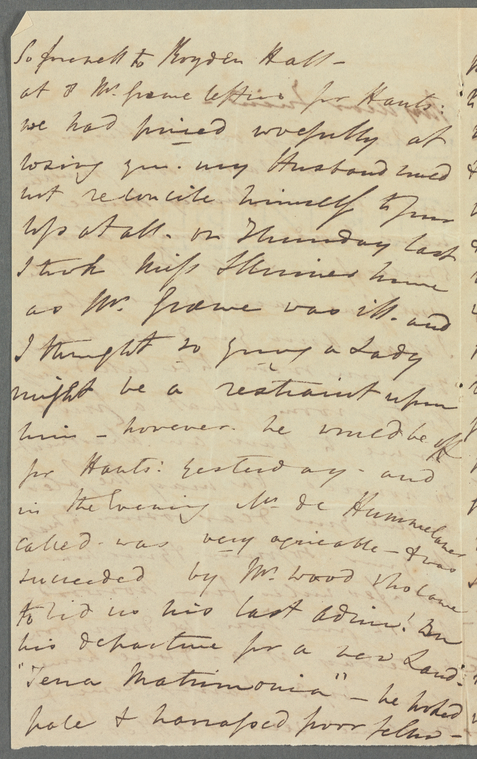 So farewell to Roydon Hall -
at & Mr. Græme for Hants:
we had pined woefully at
losing you. my Husband could
not reconcile himself to your
loss at all. on Thursday last
I took Miss Skinner home
as Mr. Græme was ill. and
I thought so young a Lady
might be a restraint upon
him - however. he would be off
for Hants: yesterday. and
in the Evening Mr de Hummelauer
called. was very agreeable - & was
succeeded by Mr. Wood who came
to bid us his last adieu! on
his departure for a new Land.
"Terra Matrimonia" - he looked
pale & harrassed poor fellow -